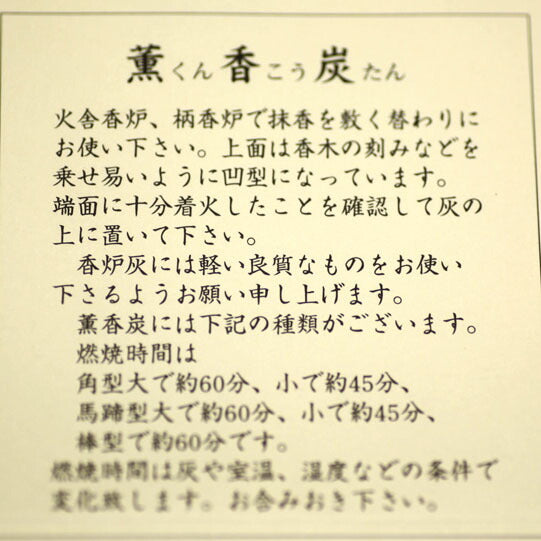 薫くん香こう炭たん
火舎香炉、柄香炉で抹香を敷く替わりに
お使い下さい。上面は香木の刻みなどを
乗せ易いように凹型になっています。
端面に十分着火したことを確認して灰の
上に置いて下さい。
香炉灰には軽い良質なものをお使い
下さるようお願い申し上げます。
薫香炭には下記の種類がございます。
燃焼時間は
角型大で約60分、小で約45分、
馬蹄型大で約60分、小で約45分、
棒型で約60分です。
燃焼時間は灰や室温、湿度などの条件で
変化致します。お含みおき下さい。